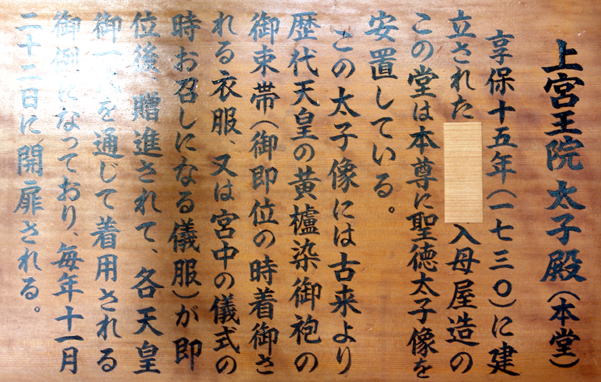 上宮王院 太子殿(本堂)
享保十五年(一七三〇)に建
立された 入母屋造の
この堂は本尊に聖徳太子像を
安置している。
この太子像には古来より
歴代天皇の黄櫨染御袍の
御束帯(御即位の時着御さ
れる衣服、又は宮中の儀式の
時お召しになる儀服)が即
位後、贈進されて、各天皇
御一 を通じて着用される
御例になっており、毎年十一月
二十二日に開扉される。